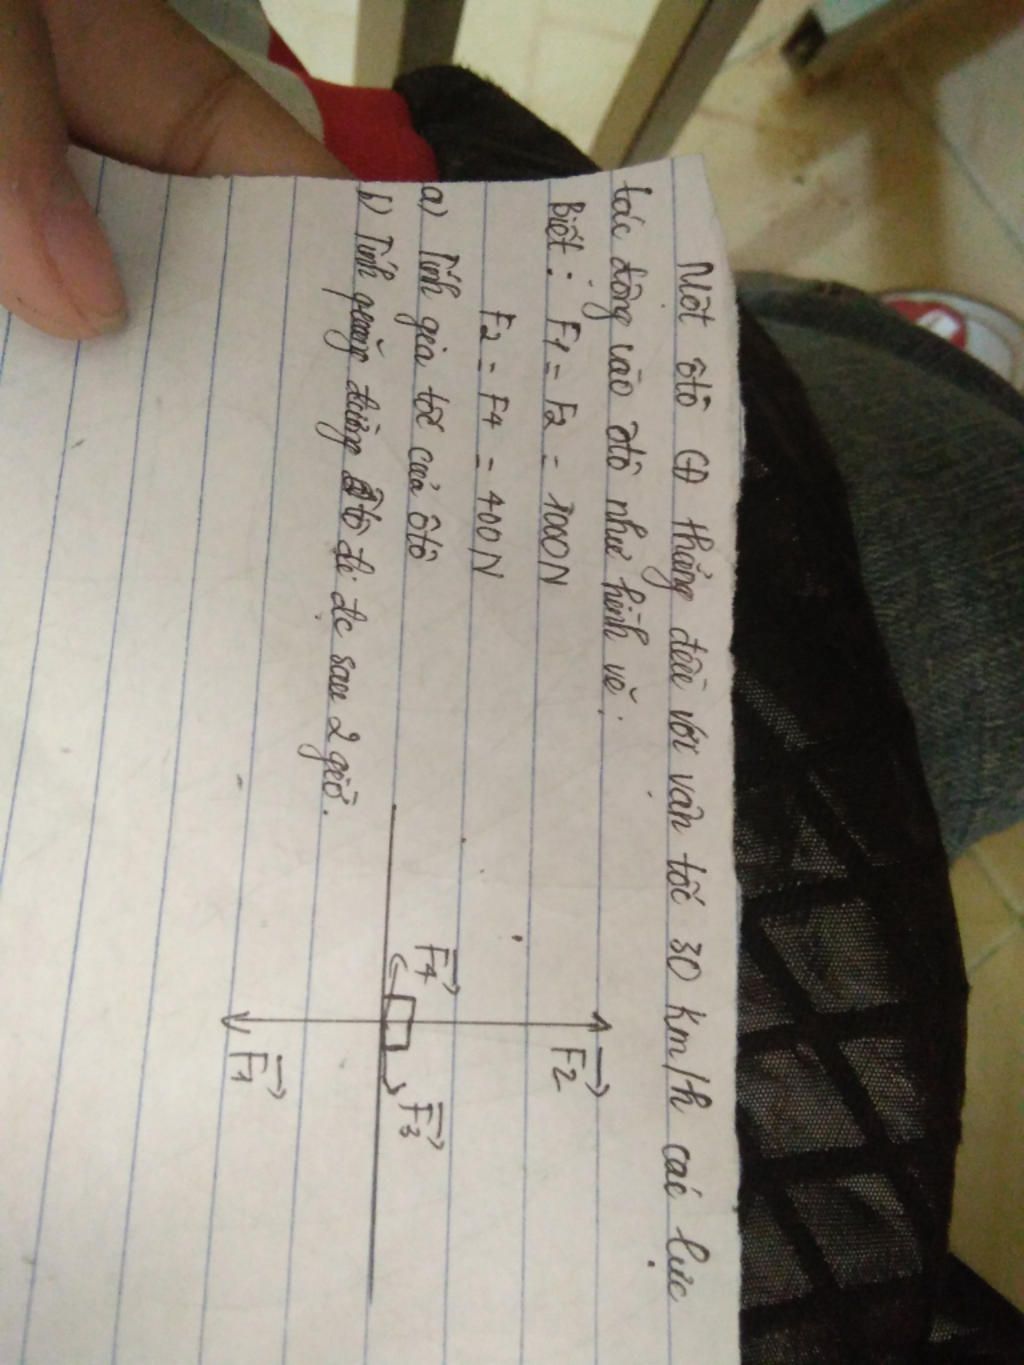 Một ôtô CĐ thẳng đều với vận tốc 30 km/h các lực
tác động vào ôtô như hình vẽ:
Biết: F1 = F2 = 1000N
F2 = F4 = 400N
a) Tính gia tốc của ôtô
b) Tính quãng đường ôtô đi đc sau 2 giờ.
F2
F4
F3
F1